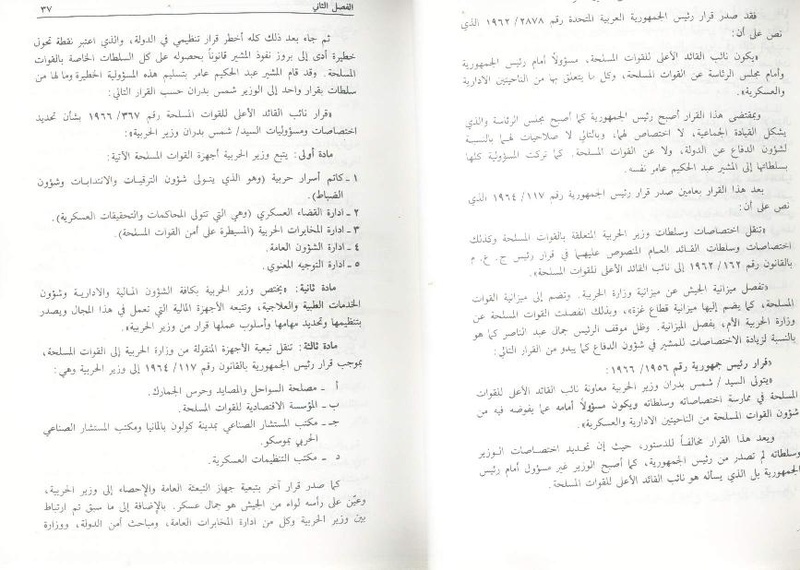 فقد صدر قرار رئيس الجمهورية العربية المتحدة رقم ٢٨٧٨ / ١٩٦٢ الذي
نص على أن:
«يكون نائب القائد الأعلى للقوات المسلحة، مسؤولاً أمام رئيس الجمهورية
وأمام مجلس الرئاسة عن القوات المسلحة، وكل ما يتعلق بها من الناحيتين الادارية
والعسكرية».
وبمقتضى هذا القرار أصبح رئيس الجمهورية كما أصبح مجلس الرئاسة والذي
يشكل القيادة الجماعية، لا اختصاص لهما، وبالتالي لا صلاحيات لهما بالنسبة
لشؤون الدفاع عن الدولة، ولا عن القوات المسلحة. كما تركت المسؤولية كلها
بسلطاتها إلى المشير عبد الحكيم عامر نفسه.
بعد هذا القرار بعامين صدر قرار رئيس الجمهورية رقم ١١٧ / ١٩٦٤ الذي
نص على أن:
«تنقل اختصاصات وسلطات وزير الحربية المتعلقة بالقوات المسلحة وكذلك
اختصاصات وسلطات القائد العام المنصوص عليهما في قرار رئيس ج. ع. م
بالقانون رقم ١٦٢ / ١٩٦٢ إلى نائب القائد الأعلى للقوات المسلحة».
«تفصل ميزانية الجيش عن ميزانية وزارة الحربية. وتضم إلى ميزانية القوات
المسلحة، كما يضم إليها ميزانية قطاع غزة»، وبذلك انفصلت القوات المسلحة عن
وزارة الحربية الأم، بفصل الميزانية. وظل موقف الرئيس جمال عبد الناصر كما هو
بالنسبة لزيادة الاختصاصات للمشير في شؤون الدفاع كما يبدو من القرار التالي:
«قرار رئيس جمهورية رقم ١٩٥٦ / ١٩٦٦:
«يتولى السيد / شمس بدران وزير الحربية معاونة نائب القائد الأعلى للقوات
المسلحة في ممارسة اختصاصاته وسلطاته ويكون مسؤولاً أمامه عما يفوضه فيه من
شؤون القوات المسلحة من الناحيتين الادارية والعسكرية».
ويعد هذا القرار مخالفاً للدستور، حيث إن تحديد اختصاصات الوزير
وسلطاته لم تصدر من رئيس الجمهورية، كما أصبح الوزير غير مسؤول أمام رئيس
الجمهورية بل الذي يسأله هو نائب القائد الأعلى للقوات المسلحة.
الفصل الثاني ٣٧
ثم جاء بعد ذلك كله أخطر قرار تنظيمي في الدولة، والذي اعتبر نقطة تحول
خطيرة أدى إلى بروز نفوذ المشير قانوناً بحصوله على كل السلطات الخاصة بالقوات
المسلحة. وقد قام المشير عبد الحكيم عامر بتسليم هذه المسؤولية الخطيرة وما لها من
سلطات بقرار واحد إلى الوزير شمس بدران حسب القرار التالي:
«قرار نائب القائد الأعلى للقوات المسلحة رقم ٣٦٧ / ١٩٦٦ بشأن تحديد
اختصاصات ومسؤوليات السيد / شمس بدران وزير الحربية»:
مادة أولى: يتبع وزير الحربية أجهزة القوات المسلحة الآتية:
١ ـ كاتم أسرار حربية (وهو الذي يتولى شؤون الترقيات والانتدابات وشؤون
الضباط).
٢ ـ ادارة القضاء العسكري (وهي التي تتولى المحاكمات والتحقيقات العسكرية).
٣ ـ ادارة المخابرات الحربية (المسيطرة على أمن القوات المسلحة).
٤ ـ ادارة الشؤون العامة.
٥ ـ ادارة التوجيه المعنوي.
مادة ثانية: «يختص وزير الحربية بكافة الشؤون المالية والادارية وشؤون
الخدمات الطبية والعلاجية، وتتبعه الأجهزة المالية التي تعمل في هذا المجال ويصدر
بتنظيمها وتحديد مهامها وأسلوب عملها قرار من وزير الحربية».
مادة ثالثة: تنقل تبعية الأجهزة المنقولة من وزارة الحربية إلى القوات المسلحة،
بموجب قرار رئيس الجمهورية بالقانون رقم ١١٧ / ١٩٦٤ إلى وزير الحربية وهي:
أ ـ مصلحة السواحل والمصايد وحرس الجمارك.
ب ـ المؤسسة الاقتصادية للقوات المسلحة.
جـ ـ مكتب المستشار الصناعي بمدينة كولون بالمانيا ومكتب المستشار الصناعي
الحربي بموسكو.
د ـ مكتب التنظيمات العسكرية.
كما صدر قرار آخر بتبعية جهاز التبعئة العامة والإحصاء إلى وزير الحربية،
وعيّن على رأسه لواء من الجيش هو جمال عسكر. بالإضافة إلى ما سبق تم ارتباط
بين وزير الحربية وكل من ادارة المخابرات العامة، ومباحث أمن الدولة، ووزارة